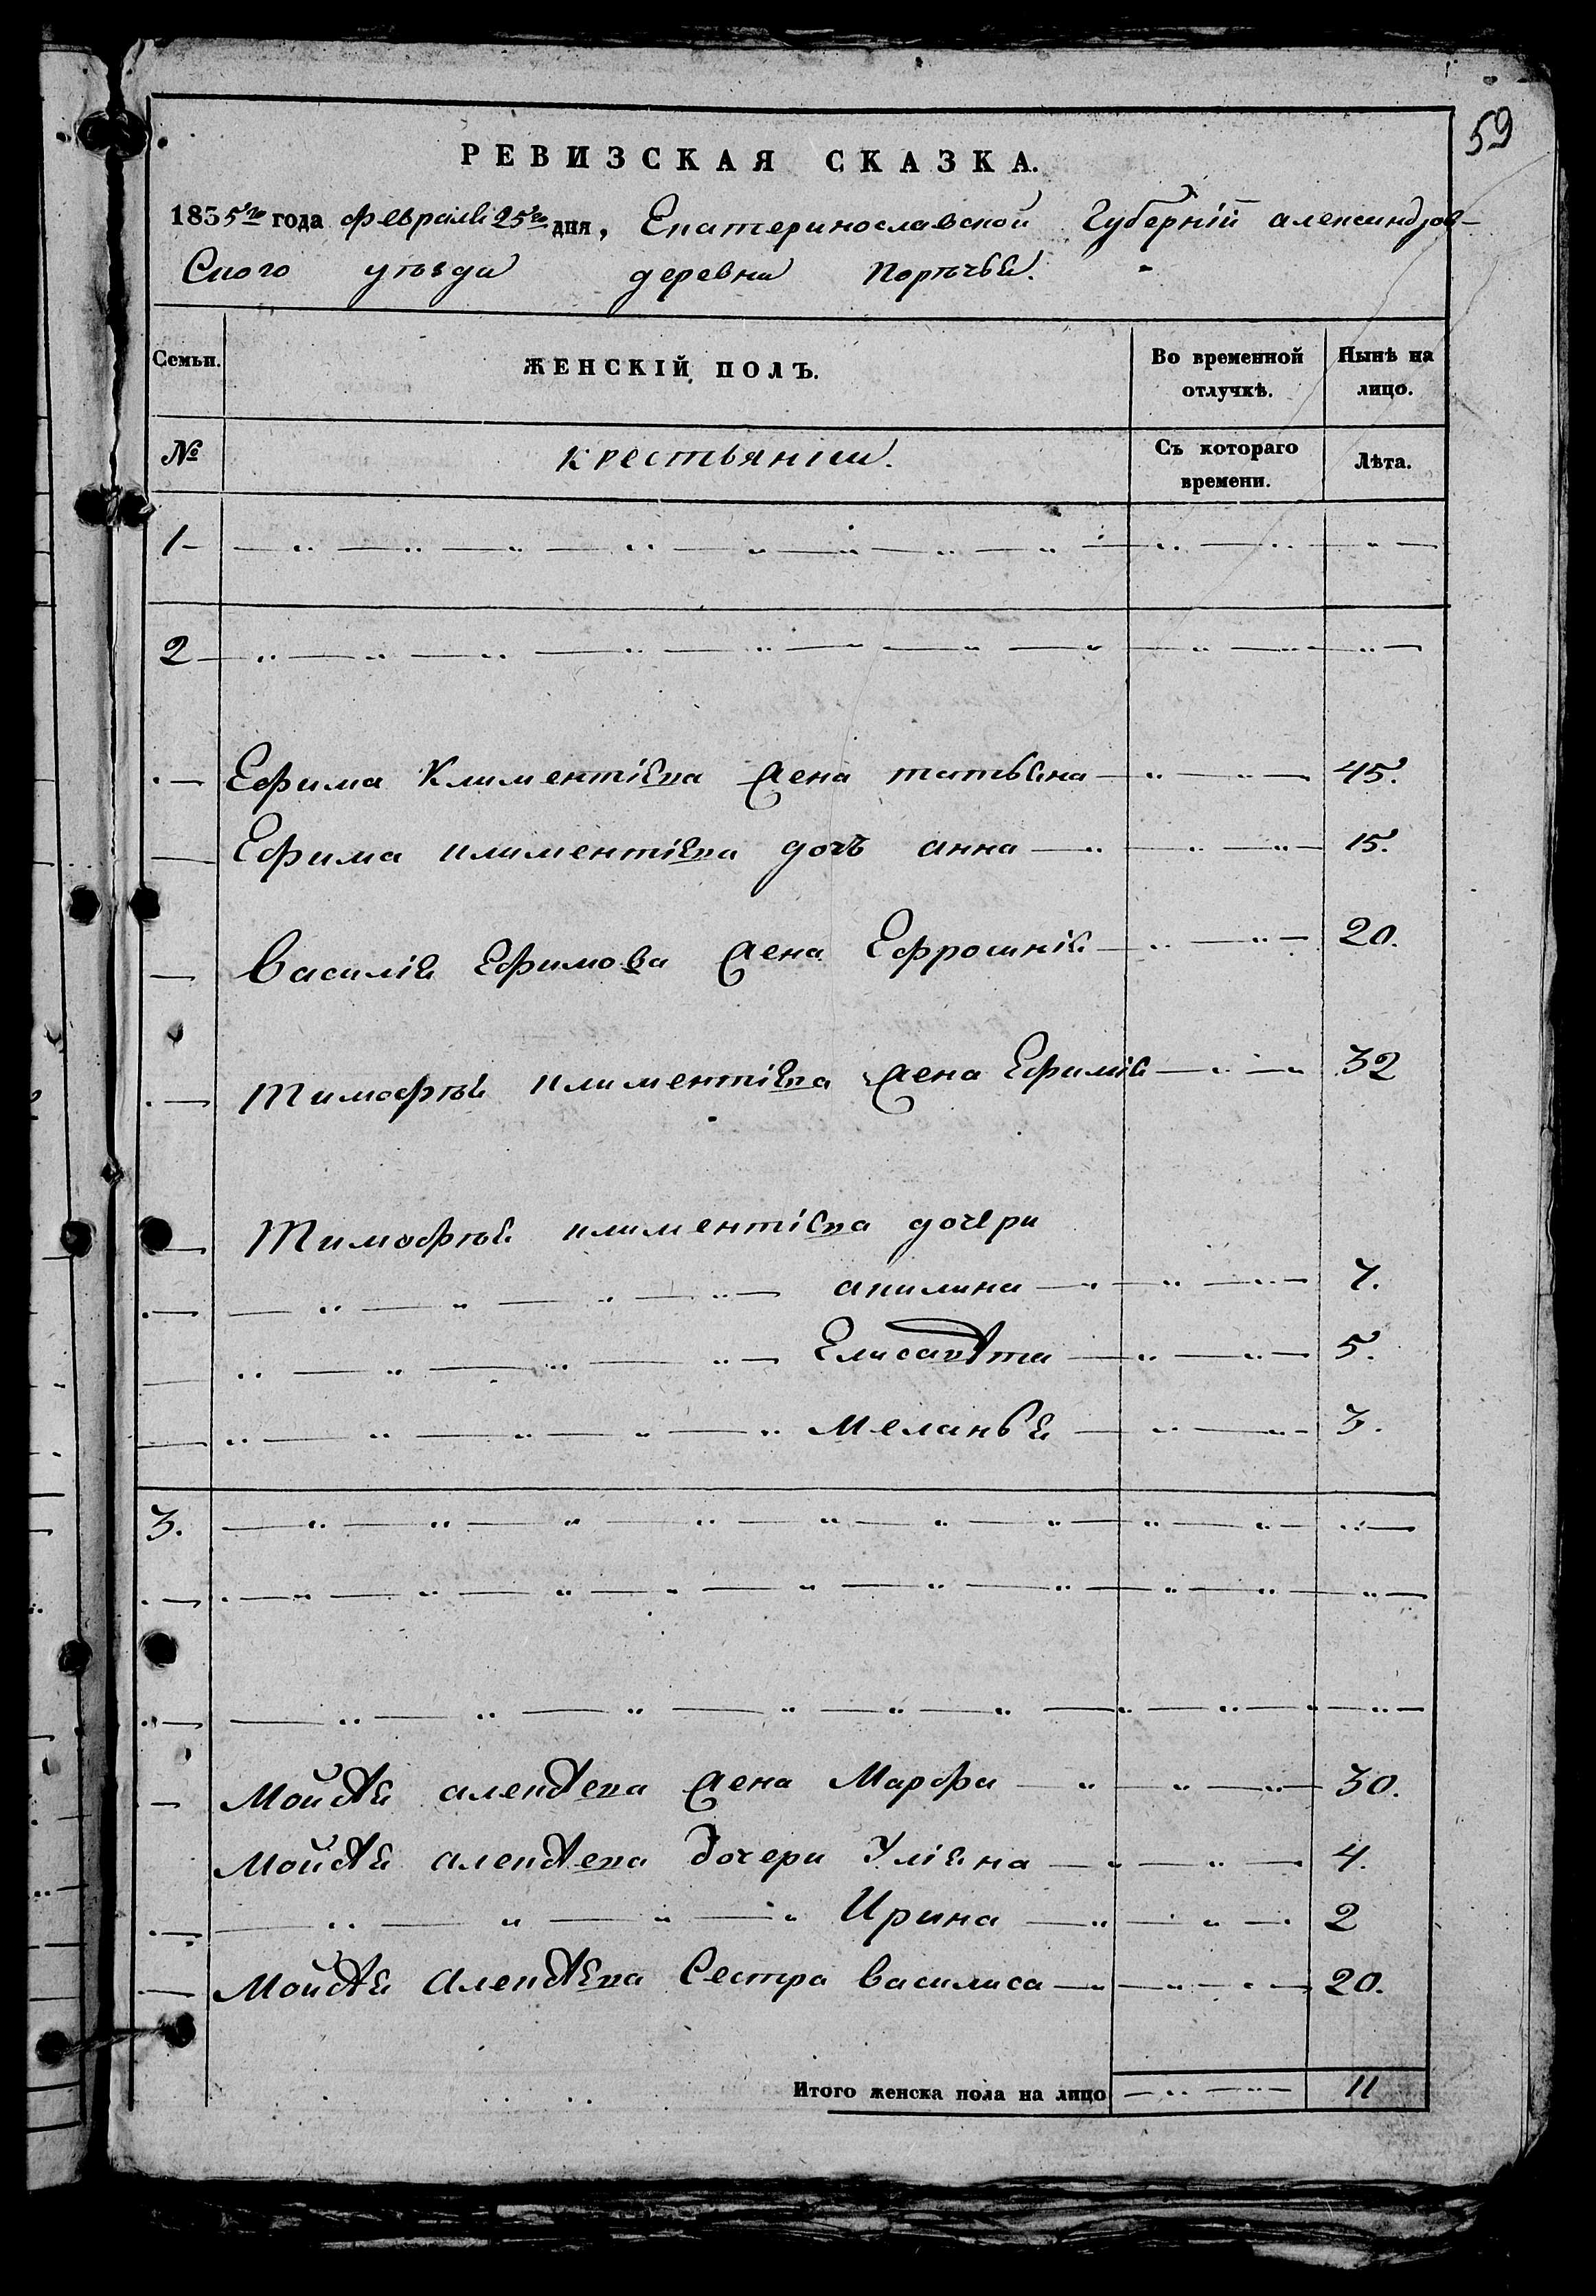 59
РЕВИЗСКАЯ СКАЗКА.
1835го года февраля 25го дня, Екатеринославской Губерніи александров-
Скаго уѣзда деревни Порѣчья.
Семьи. ЖЕНСКІЙ ПОЛЪ. Во временной отлучкѣ. Нынѣ на лицо.
№ крестьянки. Съ котораго времени. Лѣта.
1
2
Ефима Климентіева жена татьяна 45.
Ефима климентіева дочь анна 15.
Василія Ефимова жена Ефросинія 20.
Тимофѣя климентіева жена Ефимія 32
Тимофѣя климентіева дочери
акилина 7.
Елисавѣта 5.
Меланья 3.
3.
Мойсѣя алексѣева жена Марфа 30.
Мойсѣя алексѣева дочери Уліяна 4.
Ирина 2
Мойсѣя Алексѣева Сестра Василиса 20.
Итого женска пола на лицо 11